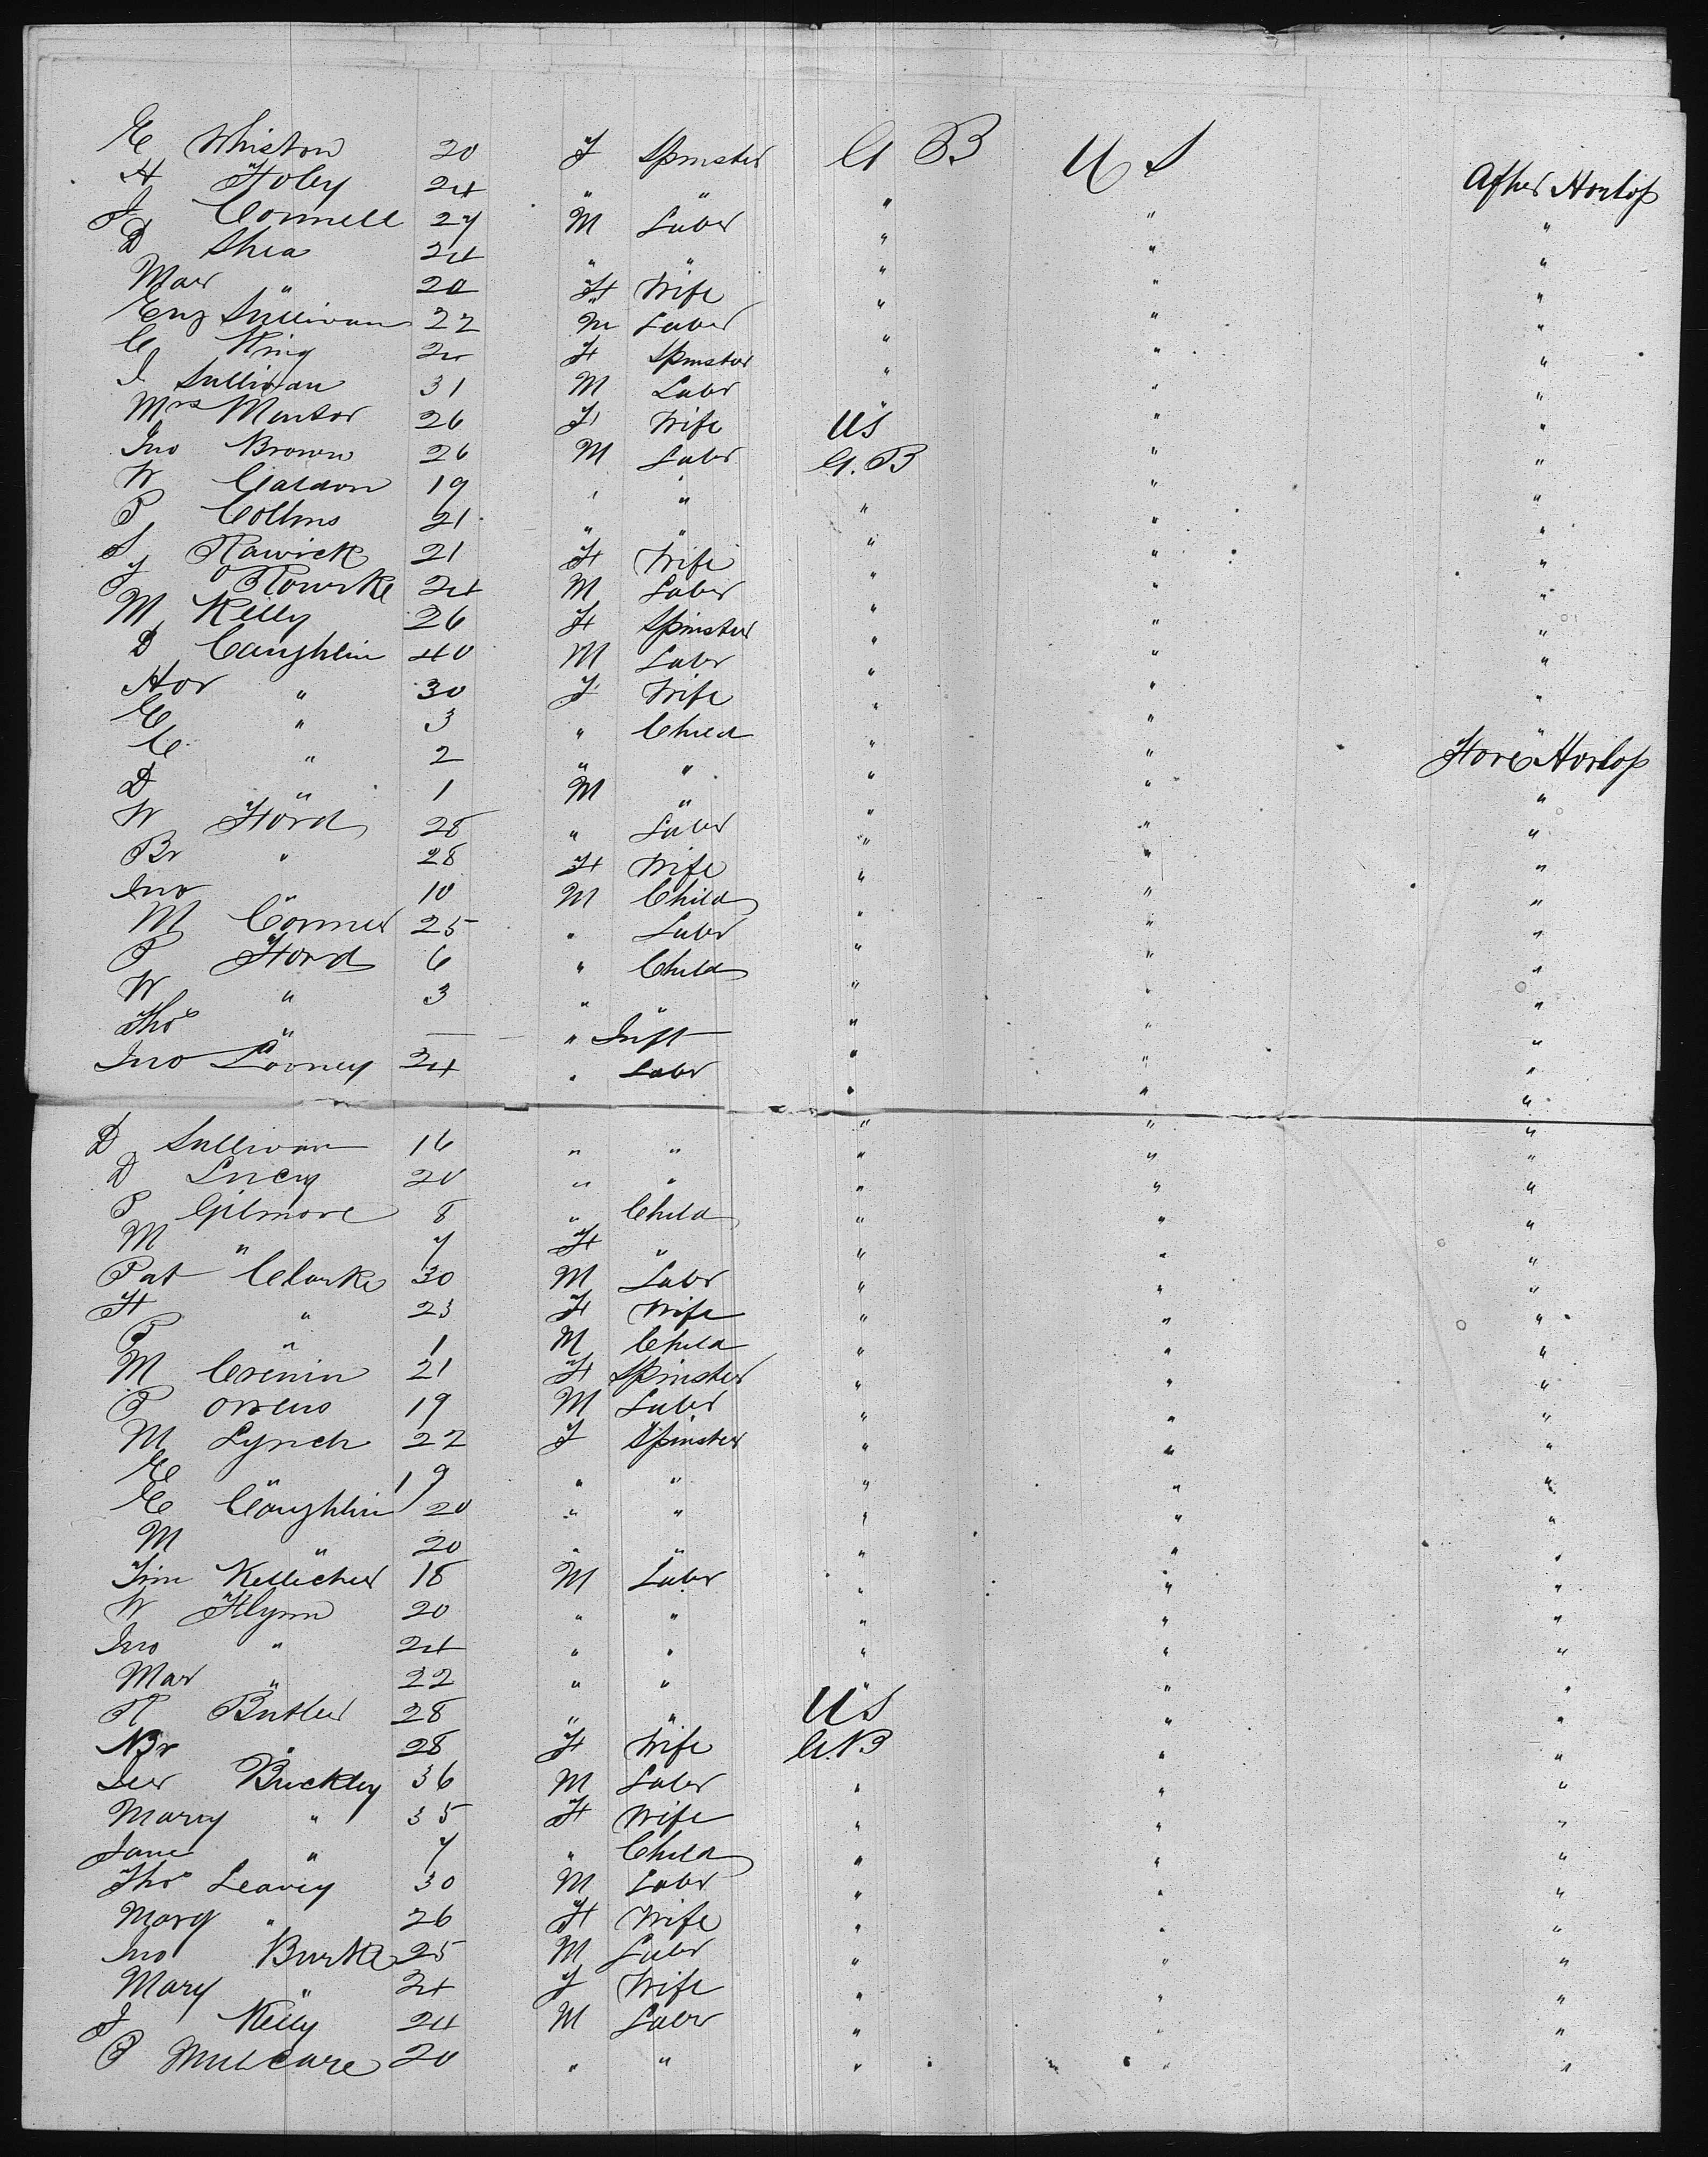 E Whiston 20 F Spinster G B U S
H Foley 24 " " " After Hortop
J Connell 27 M Labr " " "
D Shea 24 " " " " "
Mar " 20 F Wife " " "
Eug Sullivan 22 M Labr " " "
C King 20 F Spinster " " "
J Sullivan 31 M Labr " " "
Mrs Mentor 26 F Wife US " "
Jno Brown 26 M Labr G.B " "
W Caldon 19 " " " " "
P Collins 21 " " " " "
S Rawick 21 F Wife " " "
P O'Rourke 24 M Labr " " "
M Kelly 26 F Spinster " " "
D Caughlin 40 M Labr " " "
Hor " 30 F Wife " " "
E " 3 " Child " " "
C " 2 " " " " Fore Hortop
D " 1 M " " " "
W Ford 28 " Labr " " "
Br " 28 F Wife " " "
Jno " 10 M Child " " "
M Connor 25 " Labr " " "
P Ford 6 " Child " " "
W " 3 " " " " "
Thos " — " Inft " " "
Jno Looney 24 " Labr " " "
D Sullivan 16 " " " " "
D Lucy 20 " " " " "
P Gilmore 8 " Child " " "
M " 7 F " " " "
Pat Clarke 30 M Labr " " "
F " 23 F Wife " " "
P " 1 M Child " " "
M Crenin 21 F Spinster " " "
P Owens 19 M Labr " " "
M Lynch 22 F Spinster " " "
E " 19 " " " " "
E Coughlin 20 " " " " "
M " 20 " " " " "
Tim Kellieher 18 M Labr " " "
W Flynn 20 " " " " "
Jno " 24 " " " " "
Mar " 22 " " " " "
R Butler 28 " " US " "
Br " 28 F Wife G.B " "
Jer Buckley 36 M Labr " " "
Mary " 35 F Wife " " "
Jane " 7 " Child " " "
Thos Leavey 30 M Labr " " "
Marg " 26 F Wife " " "
Jno Burke 25 M Labr " " "
Mary " 24 F Wife " " "
J Kelly 24 M Labr " " "
P Mulcare 20 " " " " "